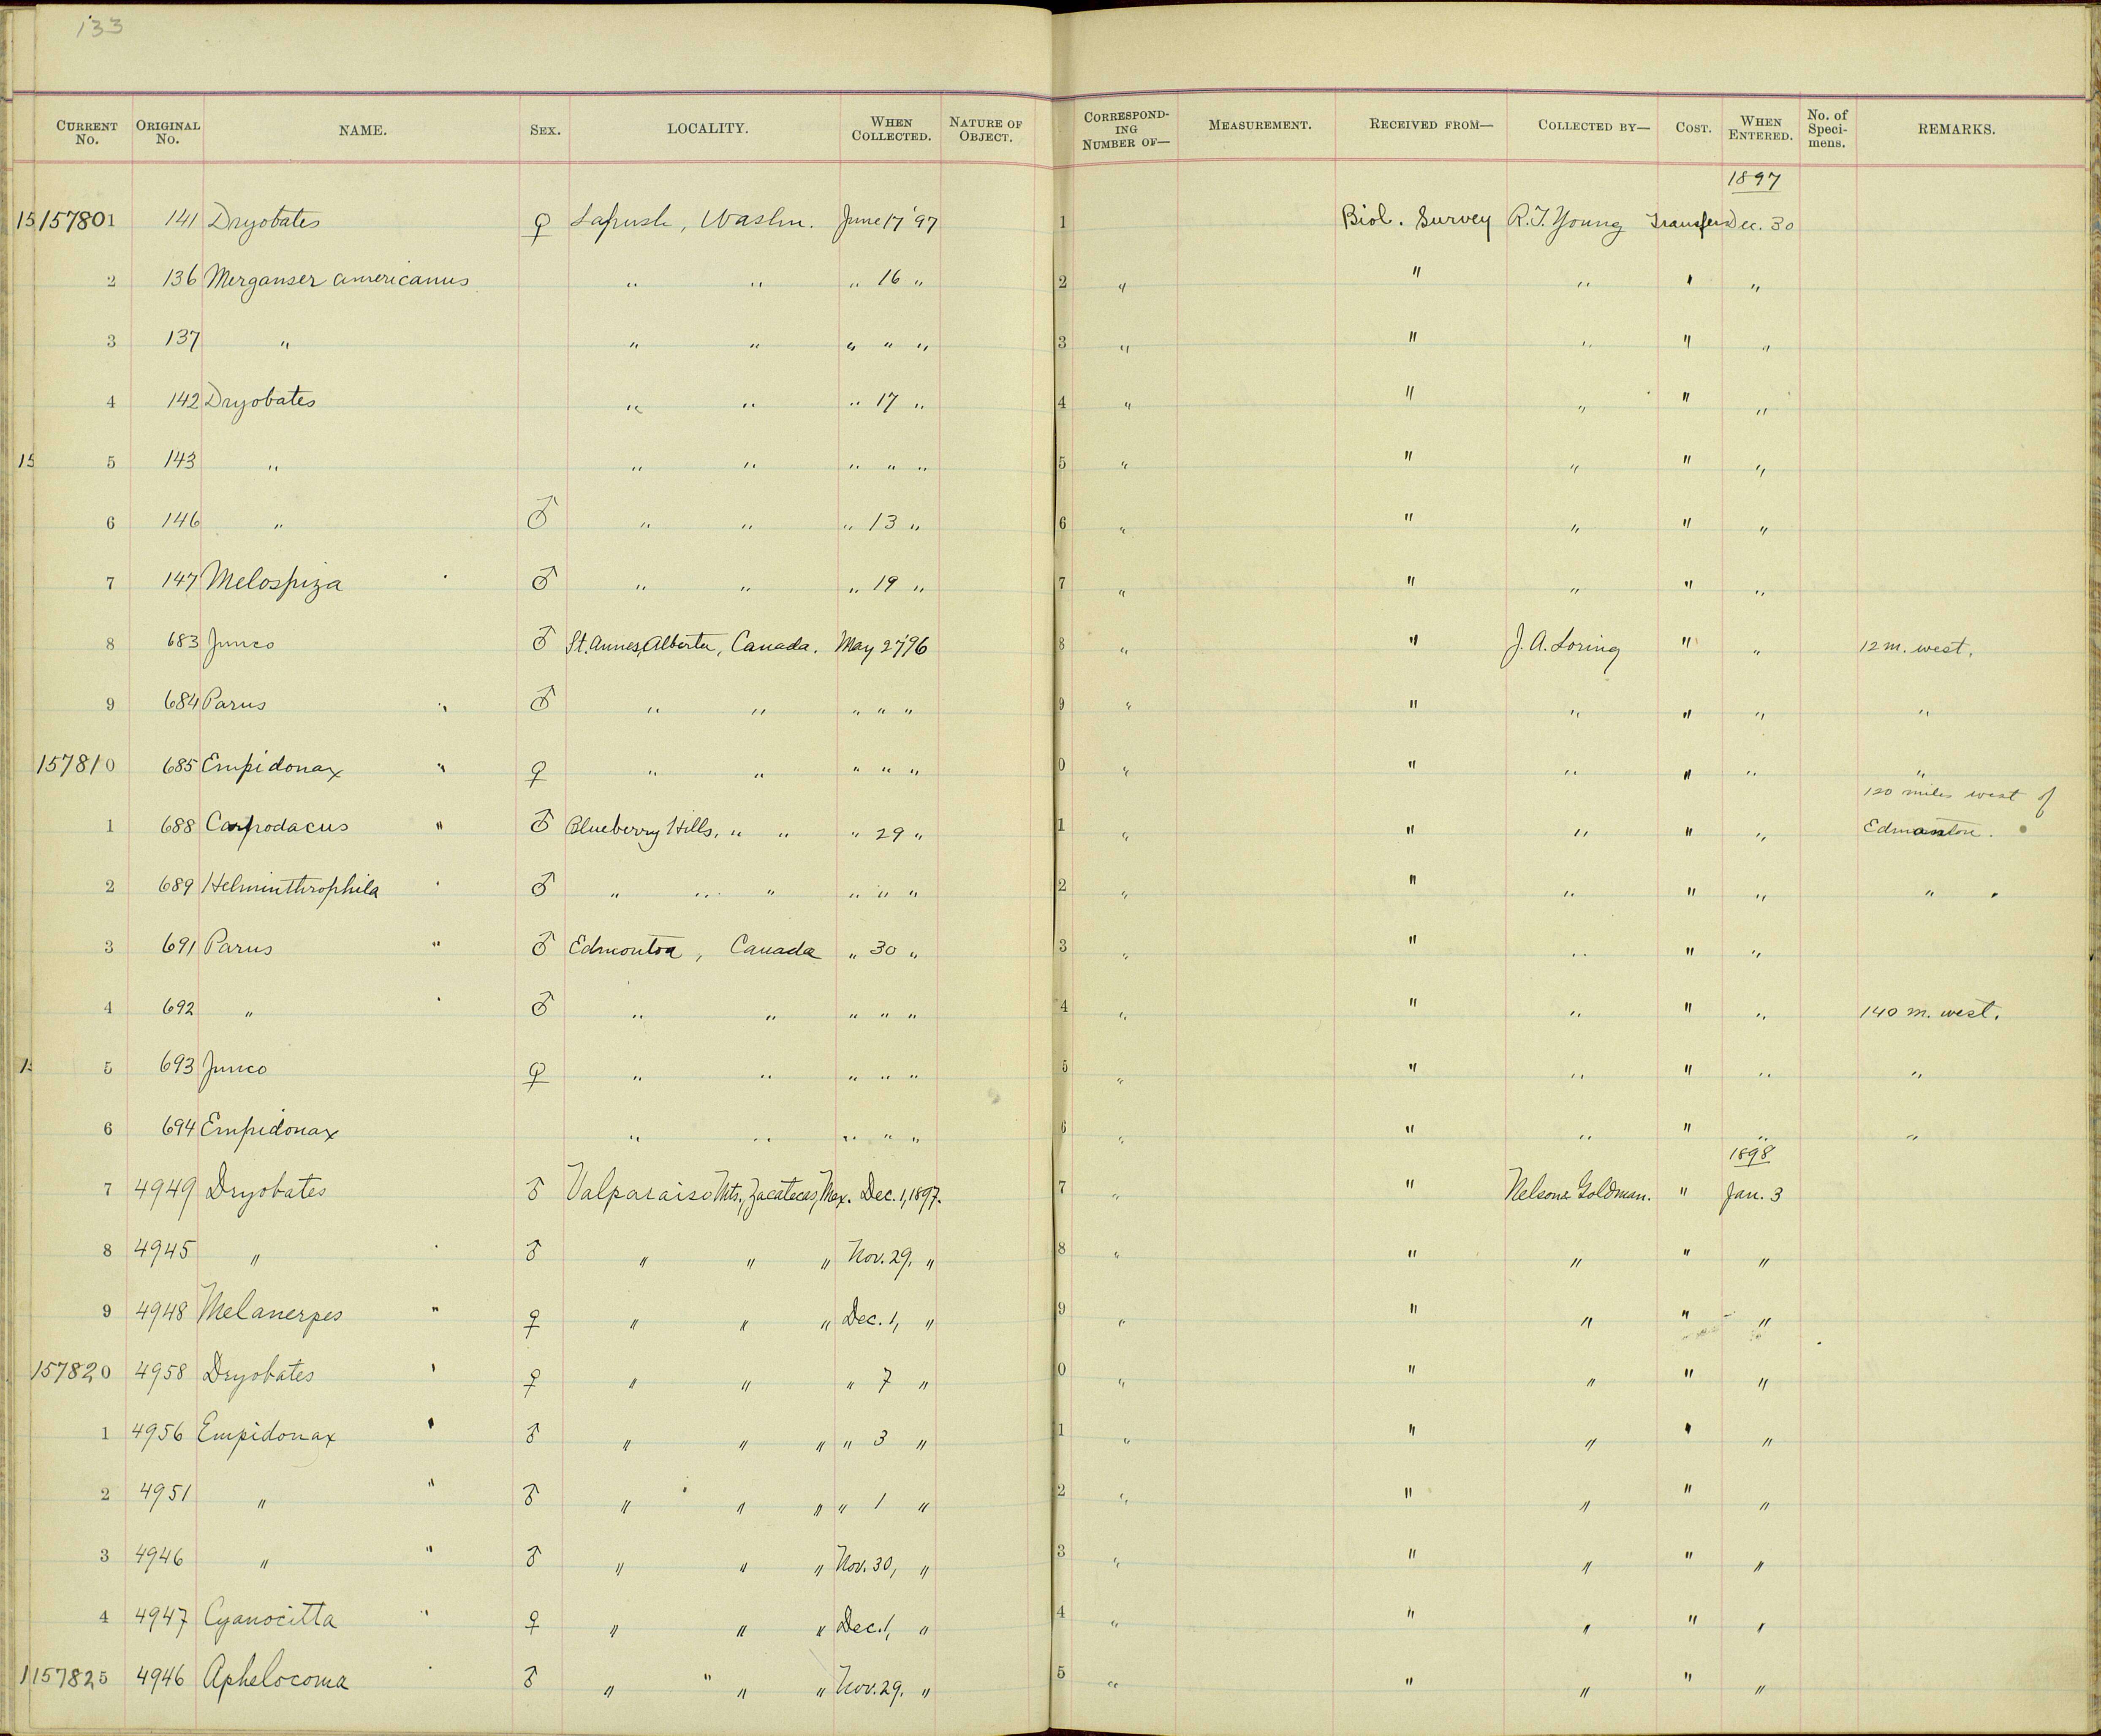 133
CURRENT No. ORIGINAL No. NAME. SEX. LOCALITY. WHEN COLLECTED. NATURE OF OBJECT. CORRESPONDING NUMBER OF— MEASUREMENT. RECEIVED FROM— COLLECTED BY— COST. WHEN ENTERED. No. of Specimens. REMARKS.
1897
15 157801 141 Dryobates ♀ Lapush, Washn. June 17 '97 1 Biol. Survey R.T. Young Transfer Dec. 30
2 136 Merganser americanus " " " 16 " 2 " " " " "
3 137 " " " " " " 3 " " " " "
4 142 Dryobates " " " 17 " 4 " " " " "
15 5 143 " " " " " " 5 " " " " "
6 146 " ♂ " " " 13 " 6 " " " " "
7 147 Melospiza ♂ " " " 19 " 7 " " " " "
8 683 Junco ♂ St. Annes, Alberta, Canada. May 27 '96 8 " " J. A. Loring " " 12 m. west.
9 684 Parus " ♂ " " " " " 9 " " " " " "
157810 685 Empidonax " ♀ " " " " " 0 " " " " " "
120 miles west of
1 688 Carpodacus " ♂ Blueberry Hills, " " " 29 " 1 " " " " " Edmonton.
2 689 Helminthrophila ' ♂ " " " " " " 2 " " " " " "
3 691 Parus " ♂ Edmonton, Canada " 30 " 3 " " " " "
4 692 " ' ♂ " " " " " 4 " " " " " 140 m. west.
15 5 693 Junco ♀ " " " " " 5 " " " " " "
6 694 Empidonax " " " " " 6 " " " " " "
1898
7 4949 Dryobates ♂ Valparaiso Mts., Zacatecas, Mex. Dec. 1, 1897. 7 " " Nelson & Goldman. " Jan. 3
8 4945 " ♂ " " " Nov. 29, " 8 " " " " "
9 4948 Melanerpes " ♀ " " " Dec. 1, " 9 " " " " "
157820 4958 Dryobates ' ♀ " " " 7 " 0 " " " " "
1 4956 Empidonax ' ♂ " " " " 3 " 1 " " " " "
2 4951 " " ♂ " " " " 1 " 2 " " " " "
3 4946 " " ♂ " " " Nov. 30, " 3 " " " " "
4 4947 Cyanocitta " ♀ " " " Dec. 1, " 4 " " " " "
1 157825 4946 Aphelocoma ♂ " " " Nov. 29. " 5 " " " " "